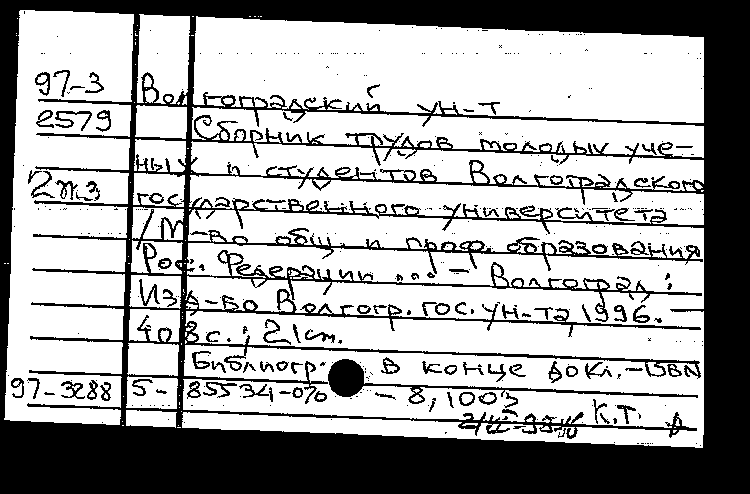 97-3 Волгоградский ун-т
2579 Сборник трудов молодых уче-
ных и студентов Волгоградского
2ж3 государственного университета
/М-во общ. и проф. образования
Рос. Федерации ... – Волгоград :
Изд-во Волгогр. гос. ун-та, 1996. —
408 с.; 21 cm.
Библиогр. в конце докл. – ISBN
97-3288 5-85534-070 – 8, 100э
К.Т.